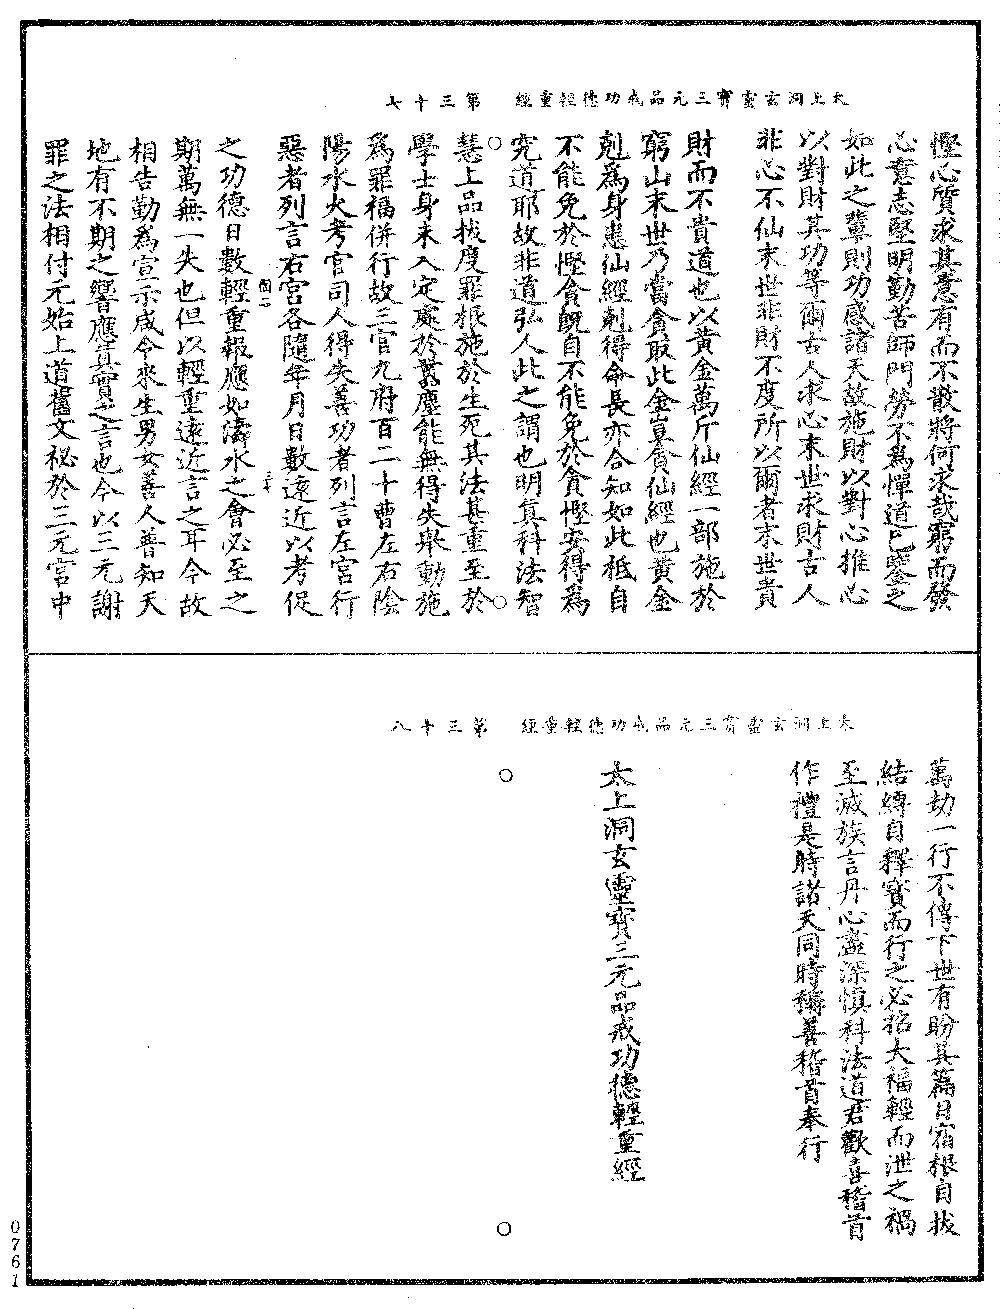 太上洞玄靈寶三元品戒功德輕重經　第三十七
慳心質求其意有而不散將何求哉窮而發
心意志堅明勤苦師門勞不爲憚道已鑒之
如此之輩則功感諸天故施財以對心推心
以對財其功等爾古人求心末世求財古人
非心不仙末世非財不度所以爾者末世貴
財而不貴道也以黃金萬斤仙經一部施於
窮山末世乃當貪取此金豈貪仙經也黃金
剋爲身患仙經剋得命長亦合知如此秪自
不能免於慳貪既自不能免於貪慳安得爲
究道耶故非道弘人此之謂也明真科法智
慧上品拔度罪根施於生死其法甚重至於
學士身未入定處於囂塵能無得失舉動施
爲罪福併行故三官九府百二十曹左右陰
陽水火考官司人得失善功者列言左宮行
惡者列言右宮各隨年月日數遠近以考促
之功德日數輕重報應如濤水之會必至之
期萬無一失也但以輕重遠近言之耳今故
相告勤爲宣示咸令來生男女善人普知天
地有不期之響應真實之言也今以三元謝
罪之法相付元始上道舊文祕於三元宮中
太上洞玄靈寶三元品戒功德輕重經　第三十八
萬劫一行不傳下世有盼其篇目宿根自拔
結縛自釋寳而行之必招大福輕而泄之禍
至滅族言丹心盡深慎科法道君歡喜稽首
作禮是時諸天同時稱善稽首奉行
太上洞玄靈寶三元品戒功德輕重經
0761